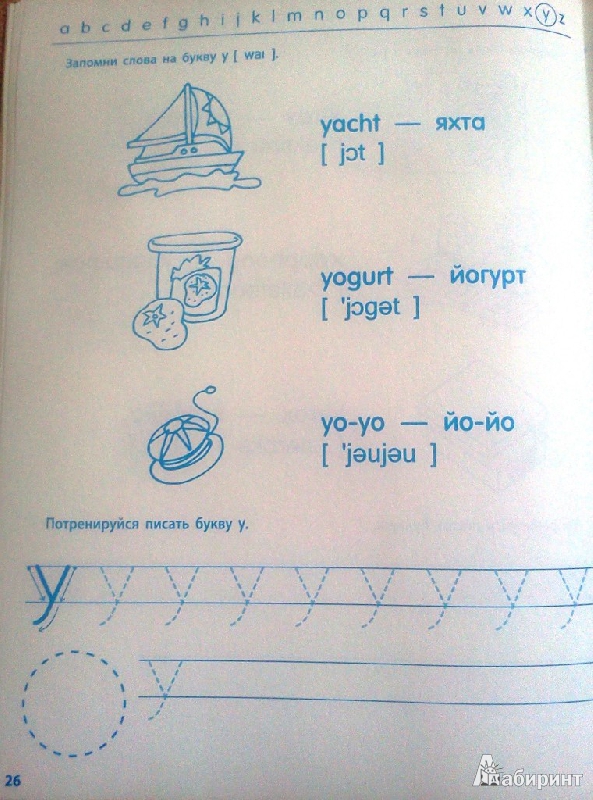 a b c d e f g h i j k l m n o p q r s t u v w x y z
Запомни слова на букву y [ waı ].
yacht — яхта
[ jɔt ]
yogurt — йогурт
[ 'jɔgət ]
yo-yo — йо-йо
[ 'jəujəu ]
Потренируйся писать букву y.
y y y y y y y y y
y
26
Лабиринт